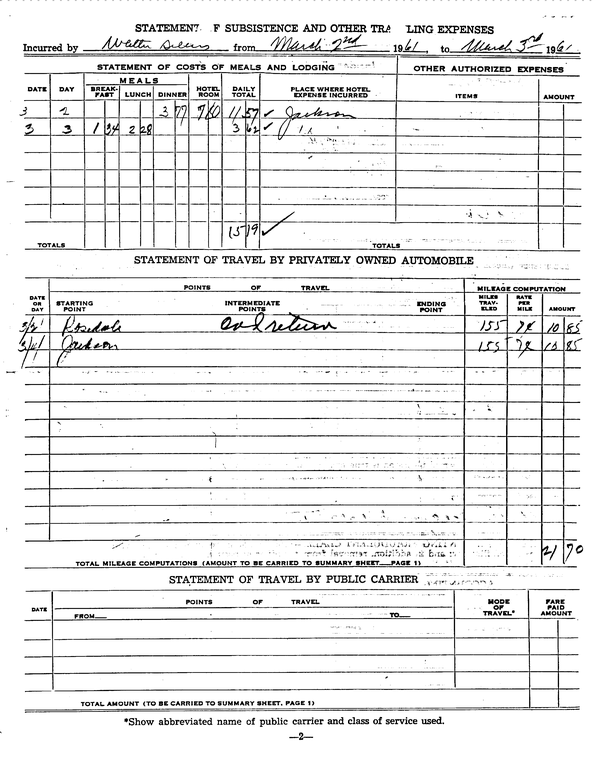 STATEMENT F SUBSISTENCE AND OTHER TRA LING EXPENSES
Incurred by Walter from March 2nd 1961, to March 3rd 1961
STATEMENT OF COSTS OF MEALS AND LODGING OTHER AUTHORIZED EXPENSES
DATE DAY MEALS HOTEL ROOM DAILY TOTAL PLACE WHERE HOTEL EXPENSE INCURRED ITEMS AMOUNT
BREAK- FAST LUNCH DINNER
3 2 3 77 7 80 11 57 ✓ Jackson
3 3 1 34 2 28 3 62 ✓
15 19 ✓
TOTALS TOTALS
STATEMENT OF TRAVEL BY PRIVATELY OWNED AUTOMOBILE
POINTS OF TRAVEL MILEAGE COMPUTATION
DATE OR DAY STARTING POINT INTERMEDIATE POINTS ENDING POINT MILES TRAV- ELED RATE PER MILE AMOUNT
3/2 Rosedale and return 155 7¢ 10 85
Jackson 155 7¢ 10 85
21 70
TOTAL MILEAGE COMPUTATIONS (AMOUNT TO BE CARRIED TO SUMMARY SHEET PAGE 1)
STATEMENT OF TRAVEL BY PUBLIC CARRIER
DATE POINTS OF TRAVEL MODE OF TRAVEL* FARE PAID AMOUNT
FROM TO
TOTAL AMOUNT (TO BE CARRIED TO SUMMARY SHEET, PAGE 1)
*Show abbreviated name of public carrier and class of service used.
—2—